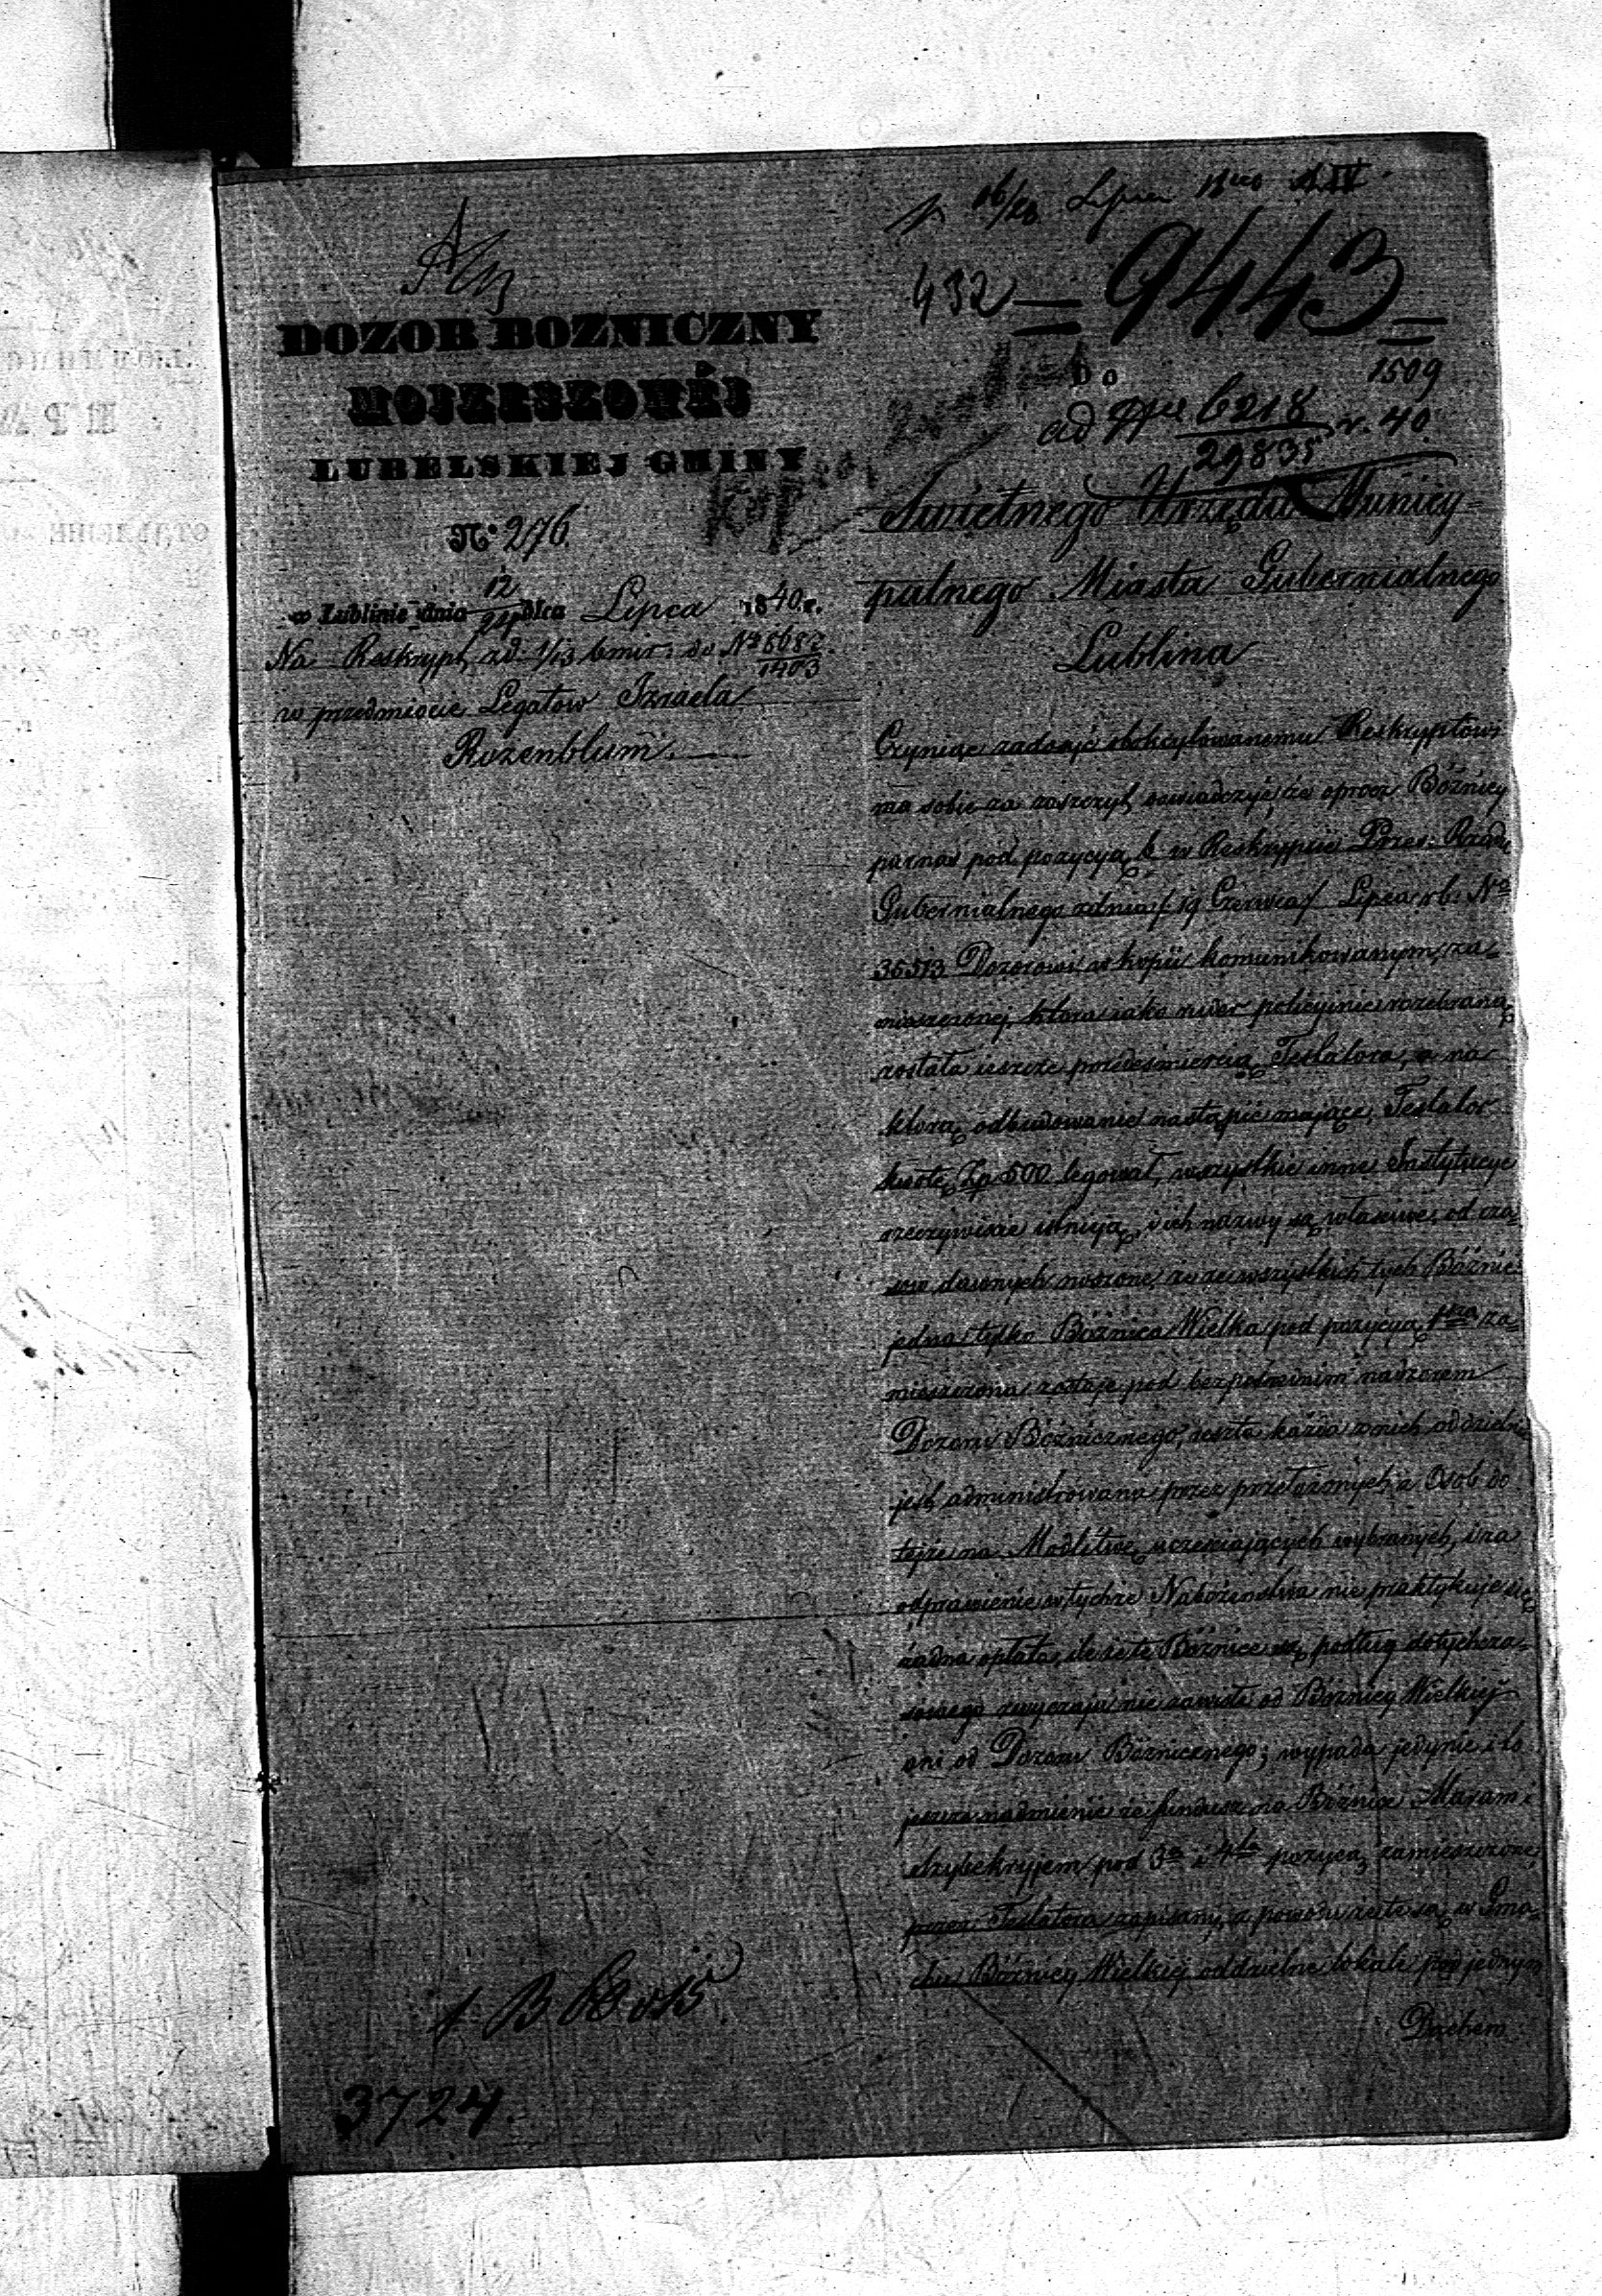 16/28 Lipca
432 = 9443 =
DOZOR BOŻNICZNY
MOJZESZOWÉJ
LUBELSKIEJ GMINY
Nº 276.
w Lublinie dnia 12/24 Lipca 1840. r.
Na Reskrypt zd. 1/13 bmir: do Nº 8682/1403
w przedmiocie Legatow Izraela
Rozenblum.
Do
1509
ad 6218/29835 r. 40
Swietnego Urzędu Municy=
palnego Miasta Gubernialnego
Lublina
Czyniąc zadosyć obokcytowanemu Reskryptowi
ma sobie za zaszczyt oswiadczyć, że oprocz Bóżnicy
parnas pod pozycyą 6 w Reskrypcie Rządu
Gubernialnego zdnia 19 Czerwca/ Lipca rb: Nº
36513 Dozorowi w kopii komunikowanym, za=
mieszczonej, ktora iako policyjnie rozebraną
została ieszcze przed smiercią Testatora, a na
ktorą odbudowanie nastąpić mające, Testator
kwotę Zp 500 legował, wszystkie inne Instytucye
rzeczywiscie istnieją, i ich nazwy są własciwe, od cza=
sow dawnych noszone, ze ze wszystkich tych Bóżnic
jedna tylko Bóżnica Wielka pod pozycyą 1szą za=
mieszczona zostaje pod bezpośrednim nadzorem
Dozoru Bóżnicznego, reszta każda z nich oddzielnie
jest administrowana przez przełożonych z Osob do
tejże na Modlitwę uczęszczających wybranych, i za
odprawienie w tychże Nabożenstwa nie praktykuje się
żadna opłata, ile że te Bóżnice są podług dotychcza=
sowego zwyczaju nie zawisłe od Bóżnicy Wielkiej
ani od Dozoru Bóżnicznego; wypada jedynie i to
jeszcze nadmienić że fundusz na Bóżnice Maram i
Szybekryjem pod 3ą i 4tą pozycą zamieszczone,
przez Testatora zapisany, z powodu że te są w Gma=
chu Bóżnicy Wielkiej oddzielne lokale pod jednym
Dachem
3724.